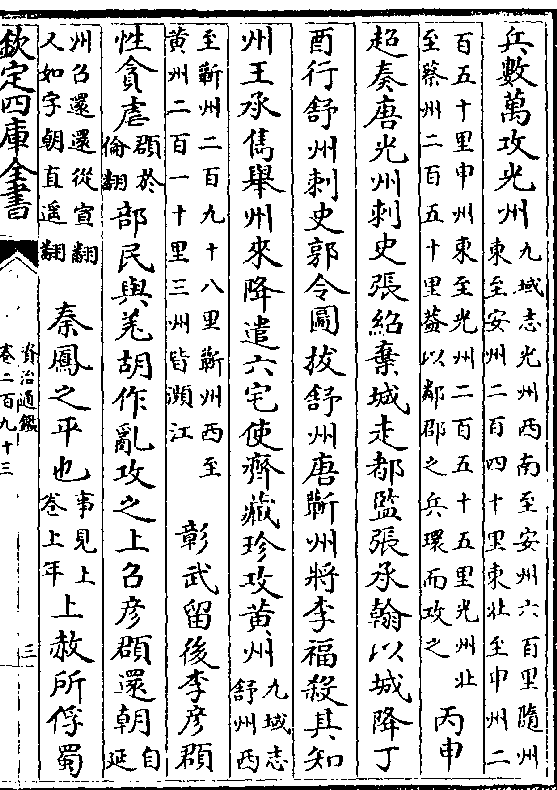 兵數萬攻光州九域志光州西南至安州六百里隨州
東至安州二百四十里東北至申州二
百五十里申州東至光州二百五十五里光州北
至蔡州二百五十里葢以鄰郡之兵環而攻之丙申
超奏唐光州刺史張紹棄城走都監張承翰以城降丁
酉行舒州刺史郭令圖拔舒州唐蘄州將李福殺其知
州王承雋舉州來降遣六宅使齊藏珍攻黄州九域志
舒州西
至蘄州二百九十八里蘄州西至
黄州二百一十里三州皆瀕江彰武留後李彦頵
性貪虐頵於
倫翻部民與羗胡作亂攻之上召彦頵還朝自
延
州召還還從宣翻
人如字朝直遥翻秦鳳之平也事見上
卷上年上赦所俘蜀
欽定四庫全書
資治通鑑
卷二百九十三
三